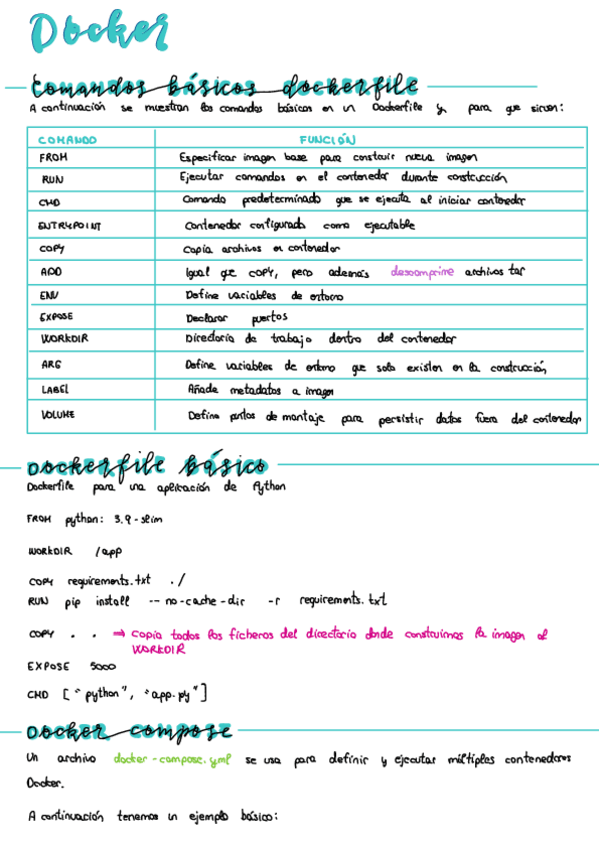 Docker
Comandos básicos dockerfile
A continuación se muestran los comandos básicos en un Dockerfile y para que sirven:
COMANDO FUNCIÓN
FROM Especificar imagen base para construir nueva imagen
RUN Ejecutar comandos en el contenedor durante construcción
CMD Comando predeterminado que se ejecuta al iniciar contenedor
ENTRYPOINT Contenedor configurado como ejecutable
COPY Copia archivos en contenedor
ADD Igual que COPY, pero además descomprime archivos tar
ENV Define variables de entorno
EXPOSE Declarar puertos
WORKDIR Directorio de trabajo dentro del contenedor
ARG Define variables de entorno que solo existen en la construcción
LABEL Añade metadatos a imagen
VOLUME Define puntos de montaje para persistir datos fuera del contenedor
Dockerfile básico
Dockerfile para una aplicación de Python
FROM python: 3.9-slim
WORKDIR /app
COPY requirements.txt ./
RUN pip install --no-cache-dir -r requirements.txt
COPY . . → Copia todos los ficheros del directorio donde construimos la imagen al
WORKDIR
EXPOSE 5000
CMD ["python", "app.py"]
Docker compose
Un archivo docker-compose.yml se usa para definir y ejecutar múltiples contenedores
Docker.
A continuación tenemos un ejemplo básico: